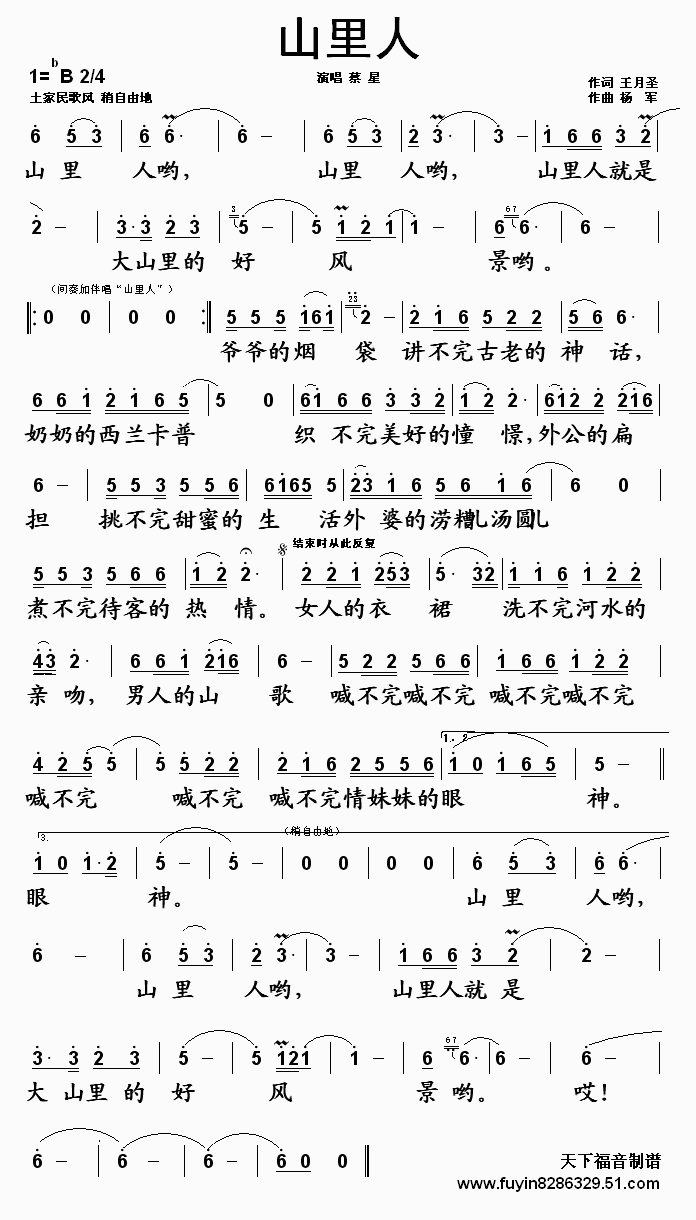 山里人
1=ᵇB 2/4
演唱 蔡 星
作词 王月圣
土家民歌风 稍自由地
作曲 杨 军
6 5 3 | 6 6· | 6 – | 6 5 3 | 2 3· | 3 – | 1 6 6 3 2 |
山 里 人哟, 山里 人哟, 山里人就是
2 – | 3· 3 2 3 | 3 5 – | 5 1 2 1 | 1 – | 6 67 6· | 6 – |
大山里的 好 风 景哟。
(间奏加伴唱“山里人”)
‖: 0 0 | 0 0 :‖ 5 5 5 1 6 1 | 23 2 – | 2 1 6 5 2 2 | 5 6 6· |
爷爷的烟 袋 讲不完古老的 神 话,
6 6 1 2 1 6 5 | 5 0 | 6 1 6 6 3 3 2 | 1 2 2· | 6 1 2 2 2 1 6 |
奶奶的西兰卡普 织 不完美好的憧 憬,外公的扁
6 – | 5 5 3 5 5 6 | 6 1 6 5 5 | 2 3 1 6 5 6 1 6 | 6 0 |
担 挑不完甜蜜的 生 活外 婆的涝糟儿汤圆儿
结束时从此反复
5 5 3 5 6 6 | 1 2 2· | 2 2 1 2 5 3 | 5· 3 2 | 1 1 6 1 2 2 |
煮不完待客的 热 情。女人的衣 裙 洗不完河水的
4 3 2· | 6 6 1 2 1 6 | 6 – | 5 2 2 5 6 6 | 1 6 6 1 2 2 |
亲 吻, 男人的山 歌 喊不完喊不完 喊不完喊不完
4 2 5 5 5 | 5 5 2 2 | 2 1 6 2 5 5 6 | 1. 2. 1 0 1 6 5 | 5 – ‖
喊不完 喊不完 喊不完情妹妹的眼 神。
3.
(稍自由地)
1 0 1· 2 | 5 – | 5 – | 0 0 | 0 0 | 6 5 3 | 6 6· |
眼 神。 山 里 人哟,
6 – | 6 5 3 | 2 3· | 3 – | 1 6 6 3 2 | 2 – |
山 里 人哟, 山里人就 是
3· 3 2 3 | 5 – | 5 1 2 1 | 1 – | 6 67 6· | 6 – | 6 – |
大 山里 的 好 风 景 哟。 哎!
6 – | 6 – | 6 – | 6 0 0 ‖
天下福音制谱
www.fuyin8286329.51.com